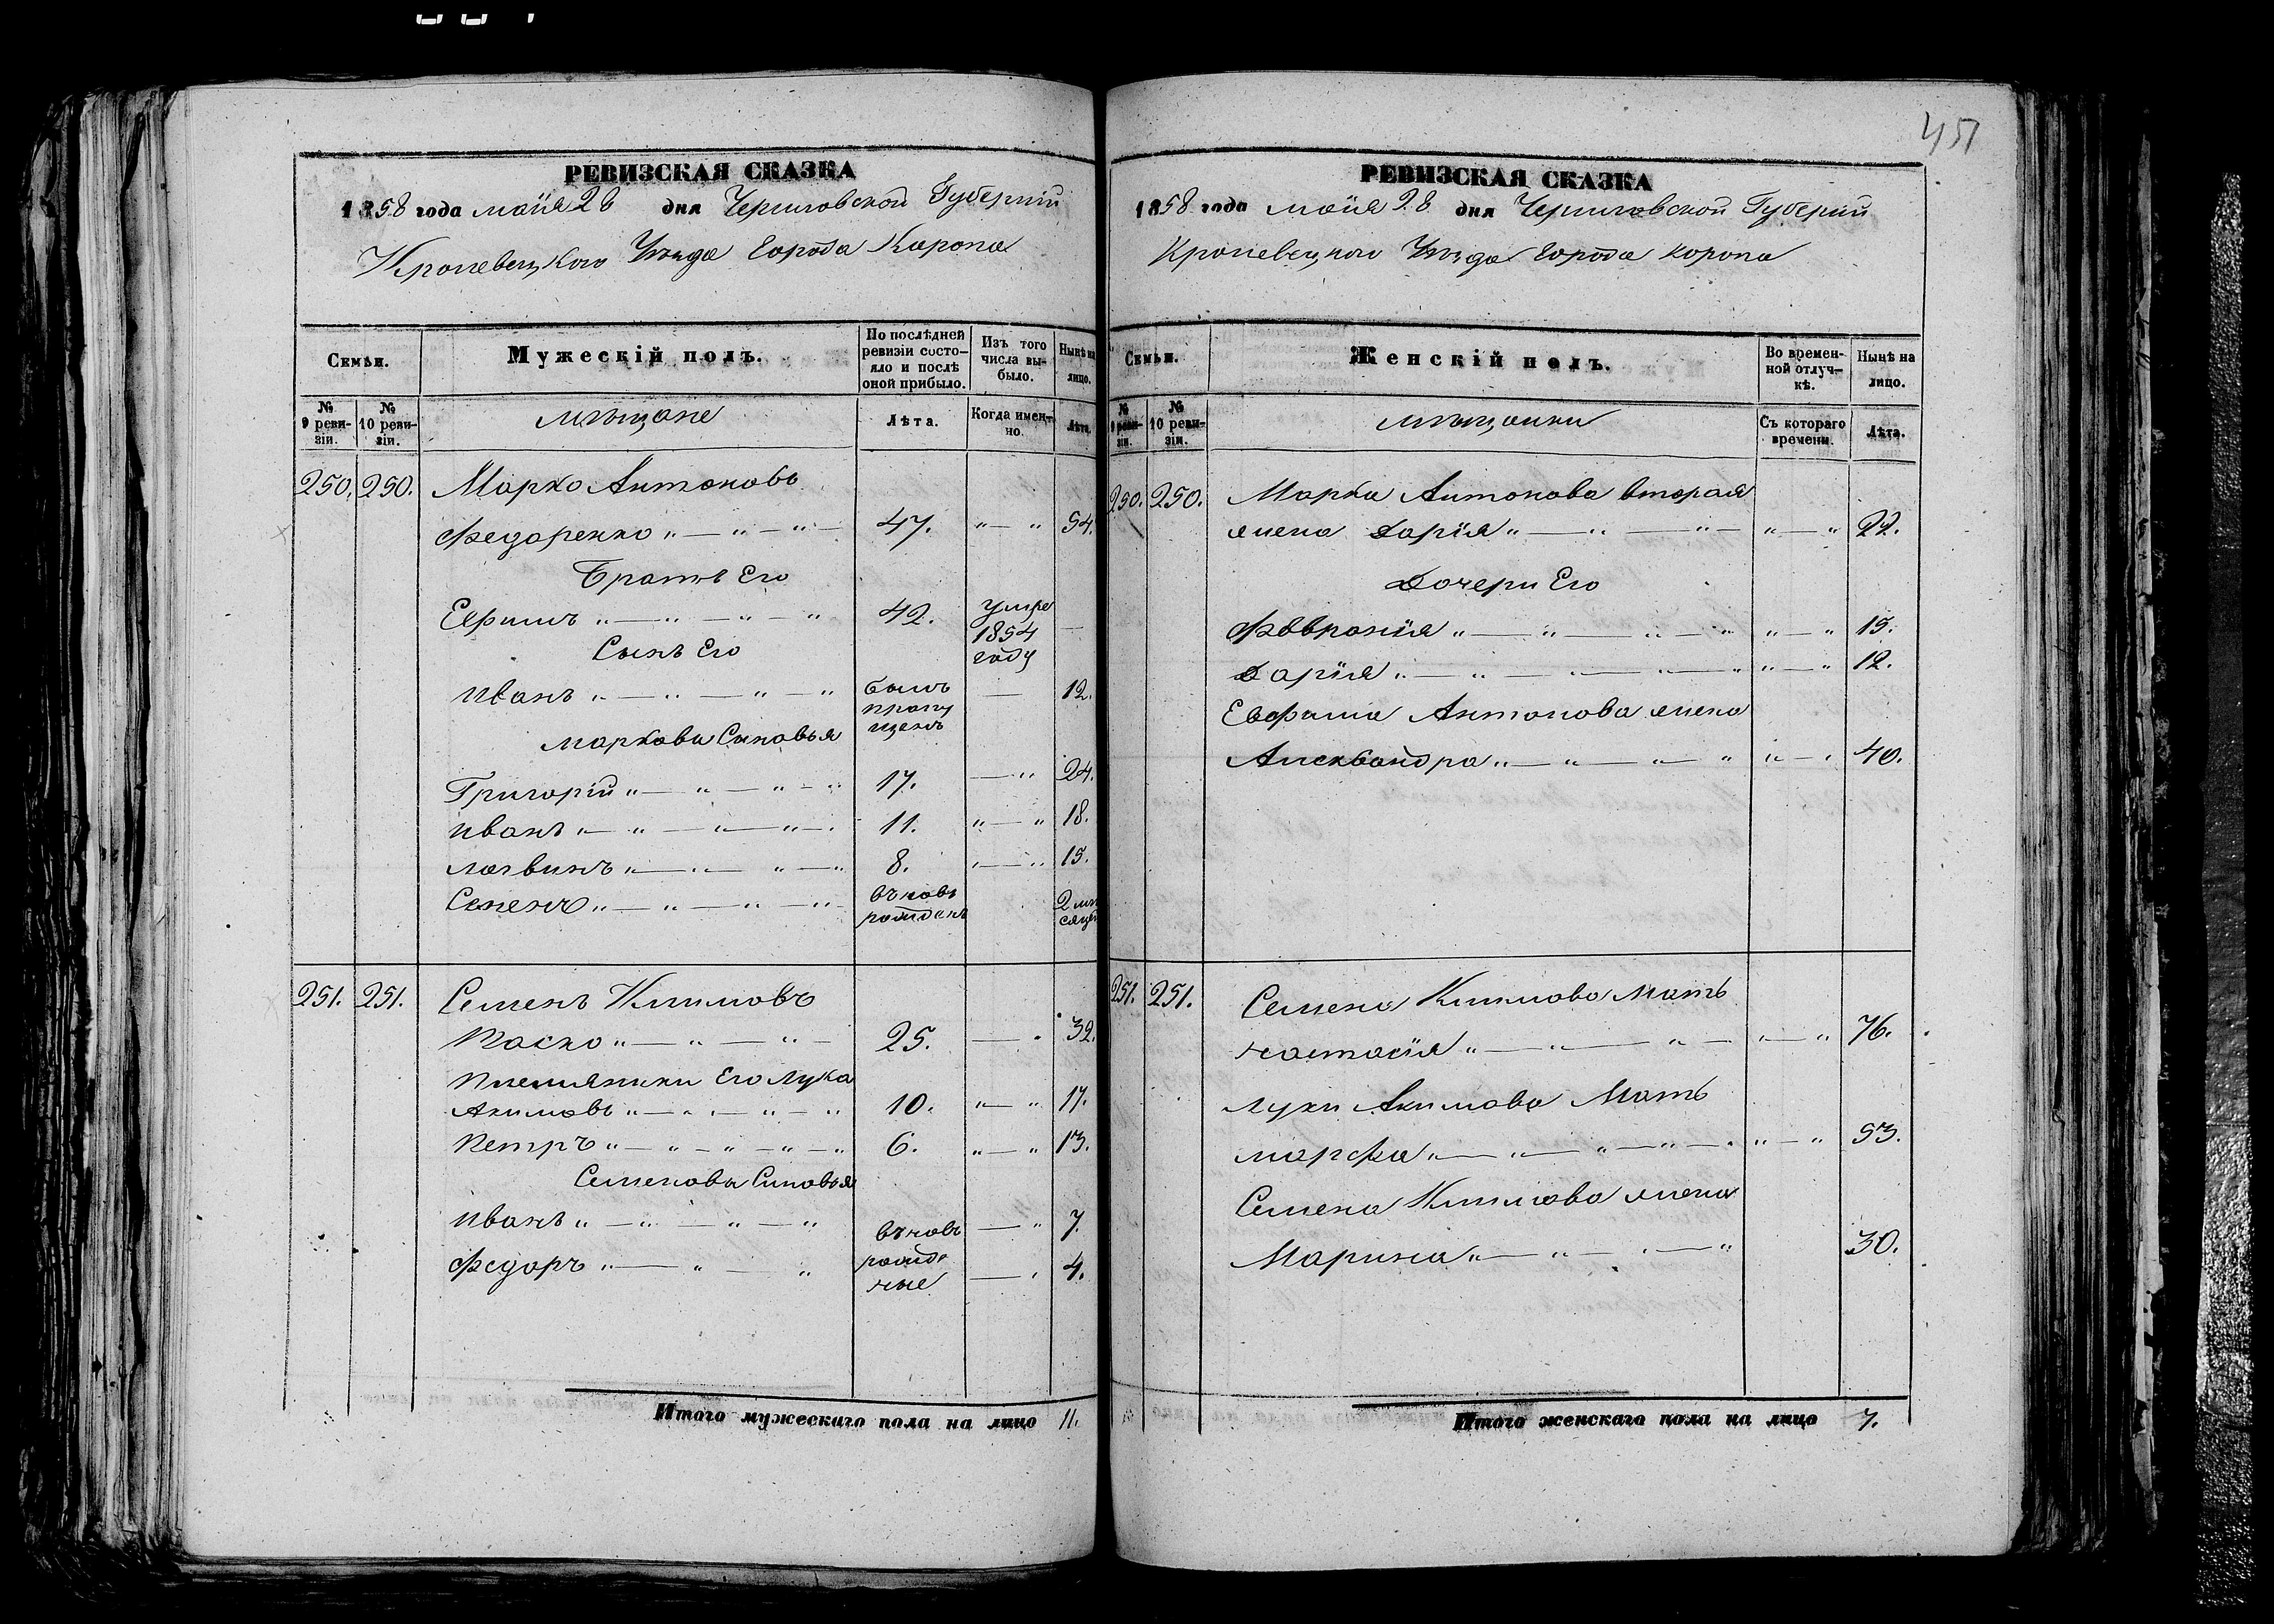 РЕВИЗСКАЯ СКАЗКА
1858 года маія 28 дня Черниговской Губерніи
Кролевецкого Уѣзда города Коропа
Семьи.
Мужескій полъ.
По послѣдней ревизіи состо-яло и послѣ оной прибыло.
Изъ того числа вы-было.
Нынѣ на лицо.
№ 9 реви-зіи.
№ 10 реви-зіи.
мѣщане
Лѣта.
Когда имен-но.
Лѣта.
250. 250. Марко Антоновъ
Федоренко 47. 54.
Братъ Его
Ефимъ 42. умре 1854 году
Сынъ Его
Иванъ былъ пропущенъ 12.
Маркова Сыновья
Григорій 17. 24.
Иванъ 11. 18.
Логвинъ 8. 15.
Семенъ вновь рожденъ 2 мѣсяца
251. 251. Семенъ Климовъ
Васко 25. 32.
Племянники Его Лука
Акимовъ 10. 17.
Петръ 6. 13.
Семенова Сыновья
Иванъ 7.
вновь рожденные
Федоръ 4.
Итого мужескаго пола на лицо 11.
451
РЕВИЗСКАЯ СКАЗКА
1858 года маія 28 дня Черниговской Губерніи
Кролевецкого Уѣзда города Коропа
Семьи.
Женскій полъ.
Во времен-ной отлуч-кѣ.
Нынѣ на лицо.
№ 9 реви-зіи.
№ 10 реви-зіи.
мѣщанки
Съ котораго времени.
Лѣта.
250. 250. Марка Антонова вторая
жена Дарія 22.
Дочери Его
Февронія 15.
Дарія 12.
Евфима Антонова жена
Александра 40.
251. 251. Семена Климова Мать
Настасія 76.
Луки Акимова Мать
Марфа 53.
Семена Климова жена
Марина 30.
Итого женскаго пола на лицо 7.